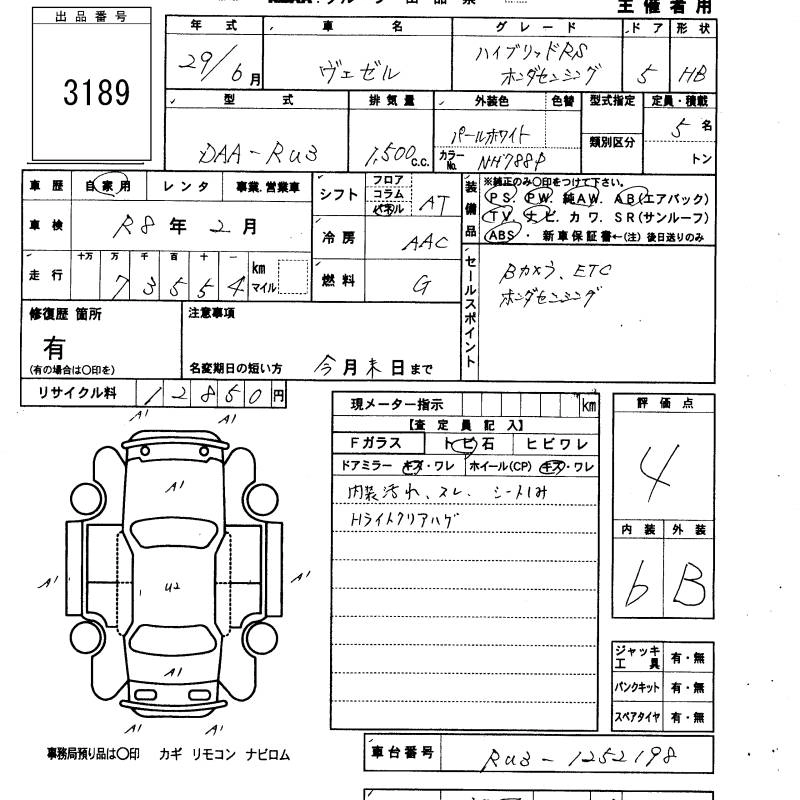 出品番号
3189
主催者用
年式 車名 グレード ドア 形状
29/6月 ヴェゼル ハイブリッドRS 5 HB
ホンダセンシング
型式 排気量 外装色 色替 型式指定 定員・積載
DAA-RU3 1,500c.c. パールホワイト 類別区分 5名
カラーNo. NH788P トン
車歴 自家用 レンタ 事業.営業車
シフト フロア コラム パネル AT
装備品 ※純正のみ〇印をつけて下さい。
PS. PW. 純AW. AB(エアバック)
TV. ナビ. カワ. SR(サンルーフ)
ABS . 新車保証書←(注) 後日送りのみ
車検 R8年2月
冷房 AAC
走行 十万 万 千 百 十 一 km マイル
73554
燃料 G
セールスポイント
Bカメラ、ETC
ホンダセンシング
修復歴 箇所
有
(有の場合は〇印を)
注意事項
名変期日の短い方 今月末日まで
リサイクル料 12850円
現メーター指示 km
【査定員記入】
Fガラス トビ石 ヒビワレ
ドアミラー キズ・ワレ ホイール(CP) キズ・ワレ
内装汚れ、スレ、シートしみ
Hライトクリアハゲ
評価点
4
内装 外装
6 B
A1 A1
A1
A1 U2 A1
A1
A1 A1
ジャッキ工具 有・無
パンクキット 有・無
スペアタイヤ 有・無
事務局預り品は〇印 カギ リモコン ナビロム
車台番号 RU3-1252198